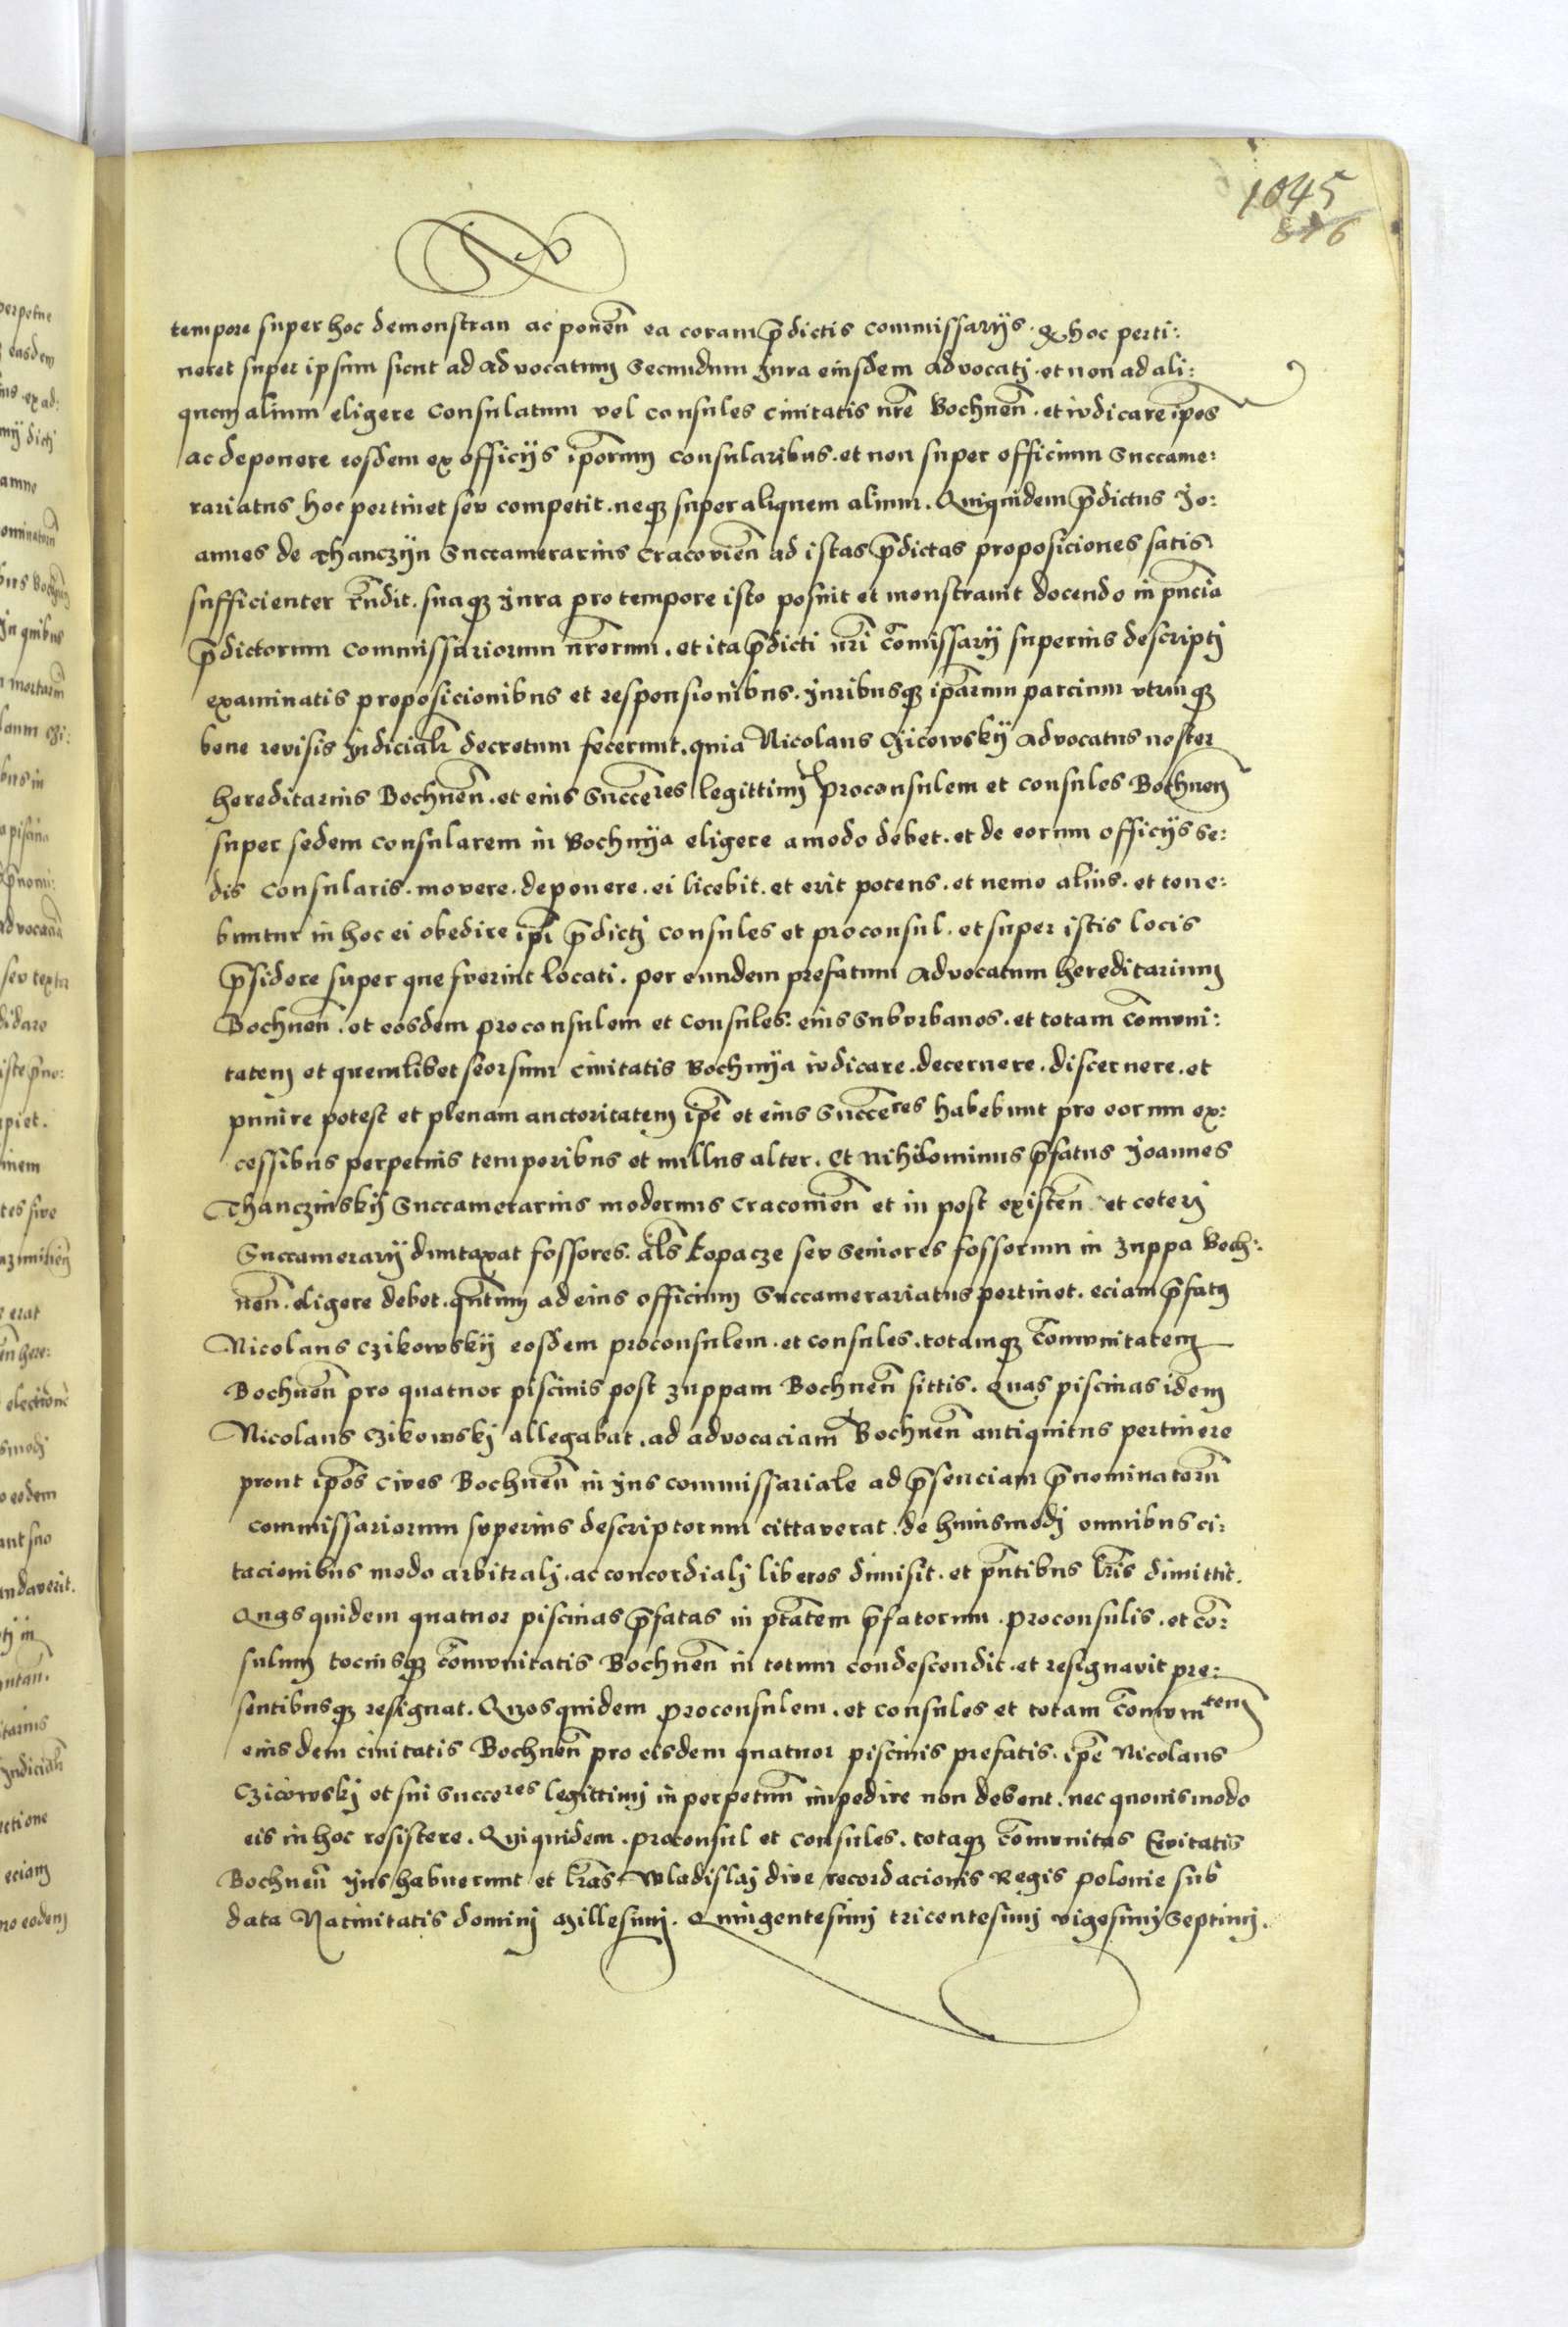 1045
876
tempore super hoc demonstran ac ponen̄ ea coram p̄dictis commissarijs. q hoc perti:
neret super ipsum sicut ad advocatum secundum Jura eiusdem advocatj. et non ad ali:
quem alium eligere consulatum vel consules civitatis nrē Bochnen̄. et iudicare ip̄os
ac deponere eosdem ex officijs ip̄orum consularibus. et non super officium Succame:
rariatus hoc pertinet seu competit. neq3 super aliquem alium. Quiquidem p̄dictus Jo:
annes de Thanczijn Succamerarius Cracovien̄ ad istas p̄dictas proposiciones satis
sufficienter rn̄dit. suaq3 Jura pro tempore isto posuit et monstravit docendo in pn̄cia
p̄dictorum commissariorum nr̄orum. et ita p̄dicti nr̄i com̄issarij superius descriptj
examinatis proposicionibus et responsionibus. Juribusq3 ip̄arum parcium vtrinq3
bene revisis Judicialr̄ decretum fecerunt. quia Nicolaus Czicowskij advocatus noster
hereditarius Bochnen̄. et eius Successores legittimj proconsulem et consules Bochnen̄
super sedem consularem in Bochnya eligere amodo debet. et de eorum officijs se:
dis consularis. movere. deponere. ei licebit. et erit potens. et nemo alius. et tene:
buntur in hoc ei obedire ip̄i p̄dictj consules et proconsul. et super istis locis
p̄sidere super que fuerint locati. per eundem prefatum advocatum hereditarium
Bochnen̄. et eosdem proconsulem et consules. eius suburbanos. et totam com̄uni:
tatem et quemlibet seorsum civitatis Bochnya iudicare. decernere. discernere. et
punire potest et plenam auctoritatem ip̄e et eius Succēres habebunt pro eorum ex:
cessibus perpetuis temporibus et nullus alter. Et nihilominus p̄fatus Joannes
Thanczinskij Succamerarius modernus Cracovien̄ et in post existen̄ et ceterj
Succamerarij duntaxat fossores. al̄s Kopacze seu seniores fossorum in zuppa Boch:
nen̄. eligere debet. qn̄tum ad eius officium Succamerariatus pertinet. eciam p̄fatus
Nicolaus Czikowskij eosdem proconsulem. et consules. totamq3 com̄unitatem
Bochnen̄ pro quatuor piscinis post zuppam Bochnen̄ sittis. Quas piscinas idem
Nicolaus Czikowskj allegabat. ad advocaciam Bochnen̄ antiquitus pertinere
prout ip̄os cives Bochnen̄ in Jus commissariale ad p̄senciam p̄nominatorū
commissariorum superius descriptorum cittaverat. de huiusmodj omnibus ci:
tacionibus modo arbitralj. ac concordialj liberos dimisit. et pn̄tibus lr̄is dimittit.
Quas quidem quatuor piscinas p̄fatas in ptātem p̄fatorum. proconsulis. et con:
sulum tociusq3 com̄unitatis Bochnen̄ in totum condescendit. et resignavit pre:
sentibusq3 resignat. Quos quidem proconsulem. et consules et totam com̄untem
eiusdem civitatis Bochnen̄ pro eisdem quatuor piscinis prefatis. ip̄e Nicolaus
Czicowskj et sui succeres legittimj in perpetuū impedire non debent. nec quovismodo
eis in hoc resistere. Quiquidem. proconsul et consules. totaq3 com̄unitas Civitatis
Bochnen̄ Jus habuerunt et lr̄as Wladislaj dive recordacionis Regis Polonie sub
data Nativitatis dominj Millesimj. Quingentesimj tricentesimj vigesimj Septimj.